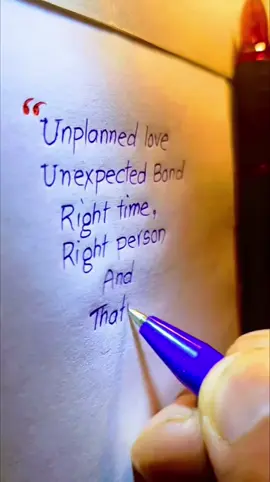 “
Unplanned love
Unexpected Bond
Right time,
Right person
And
That